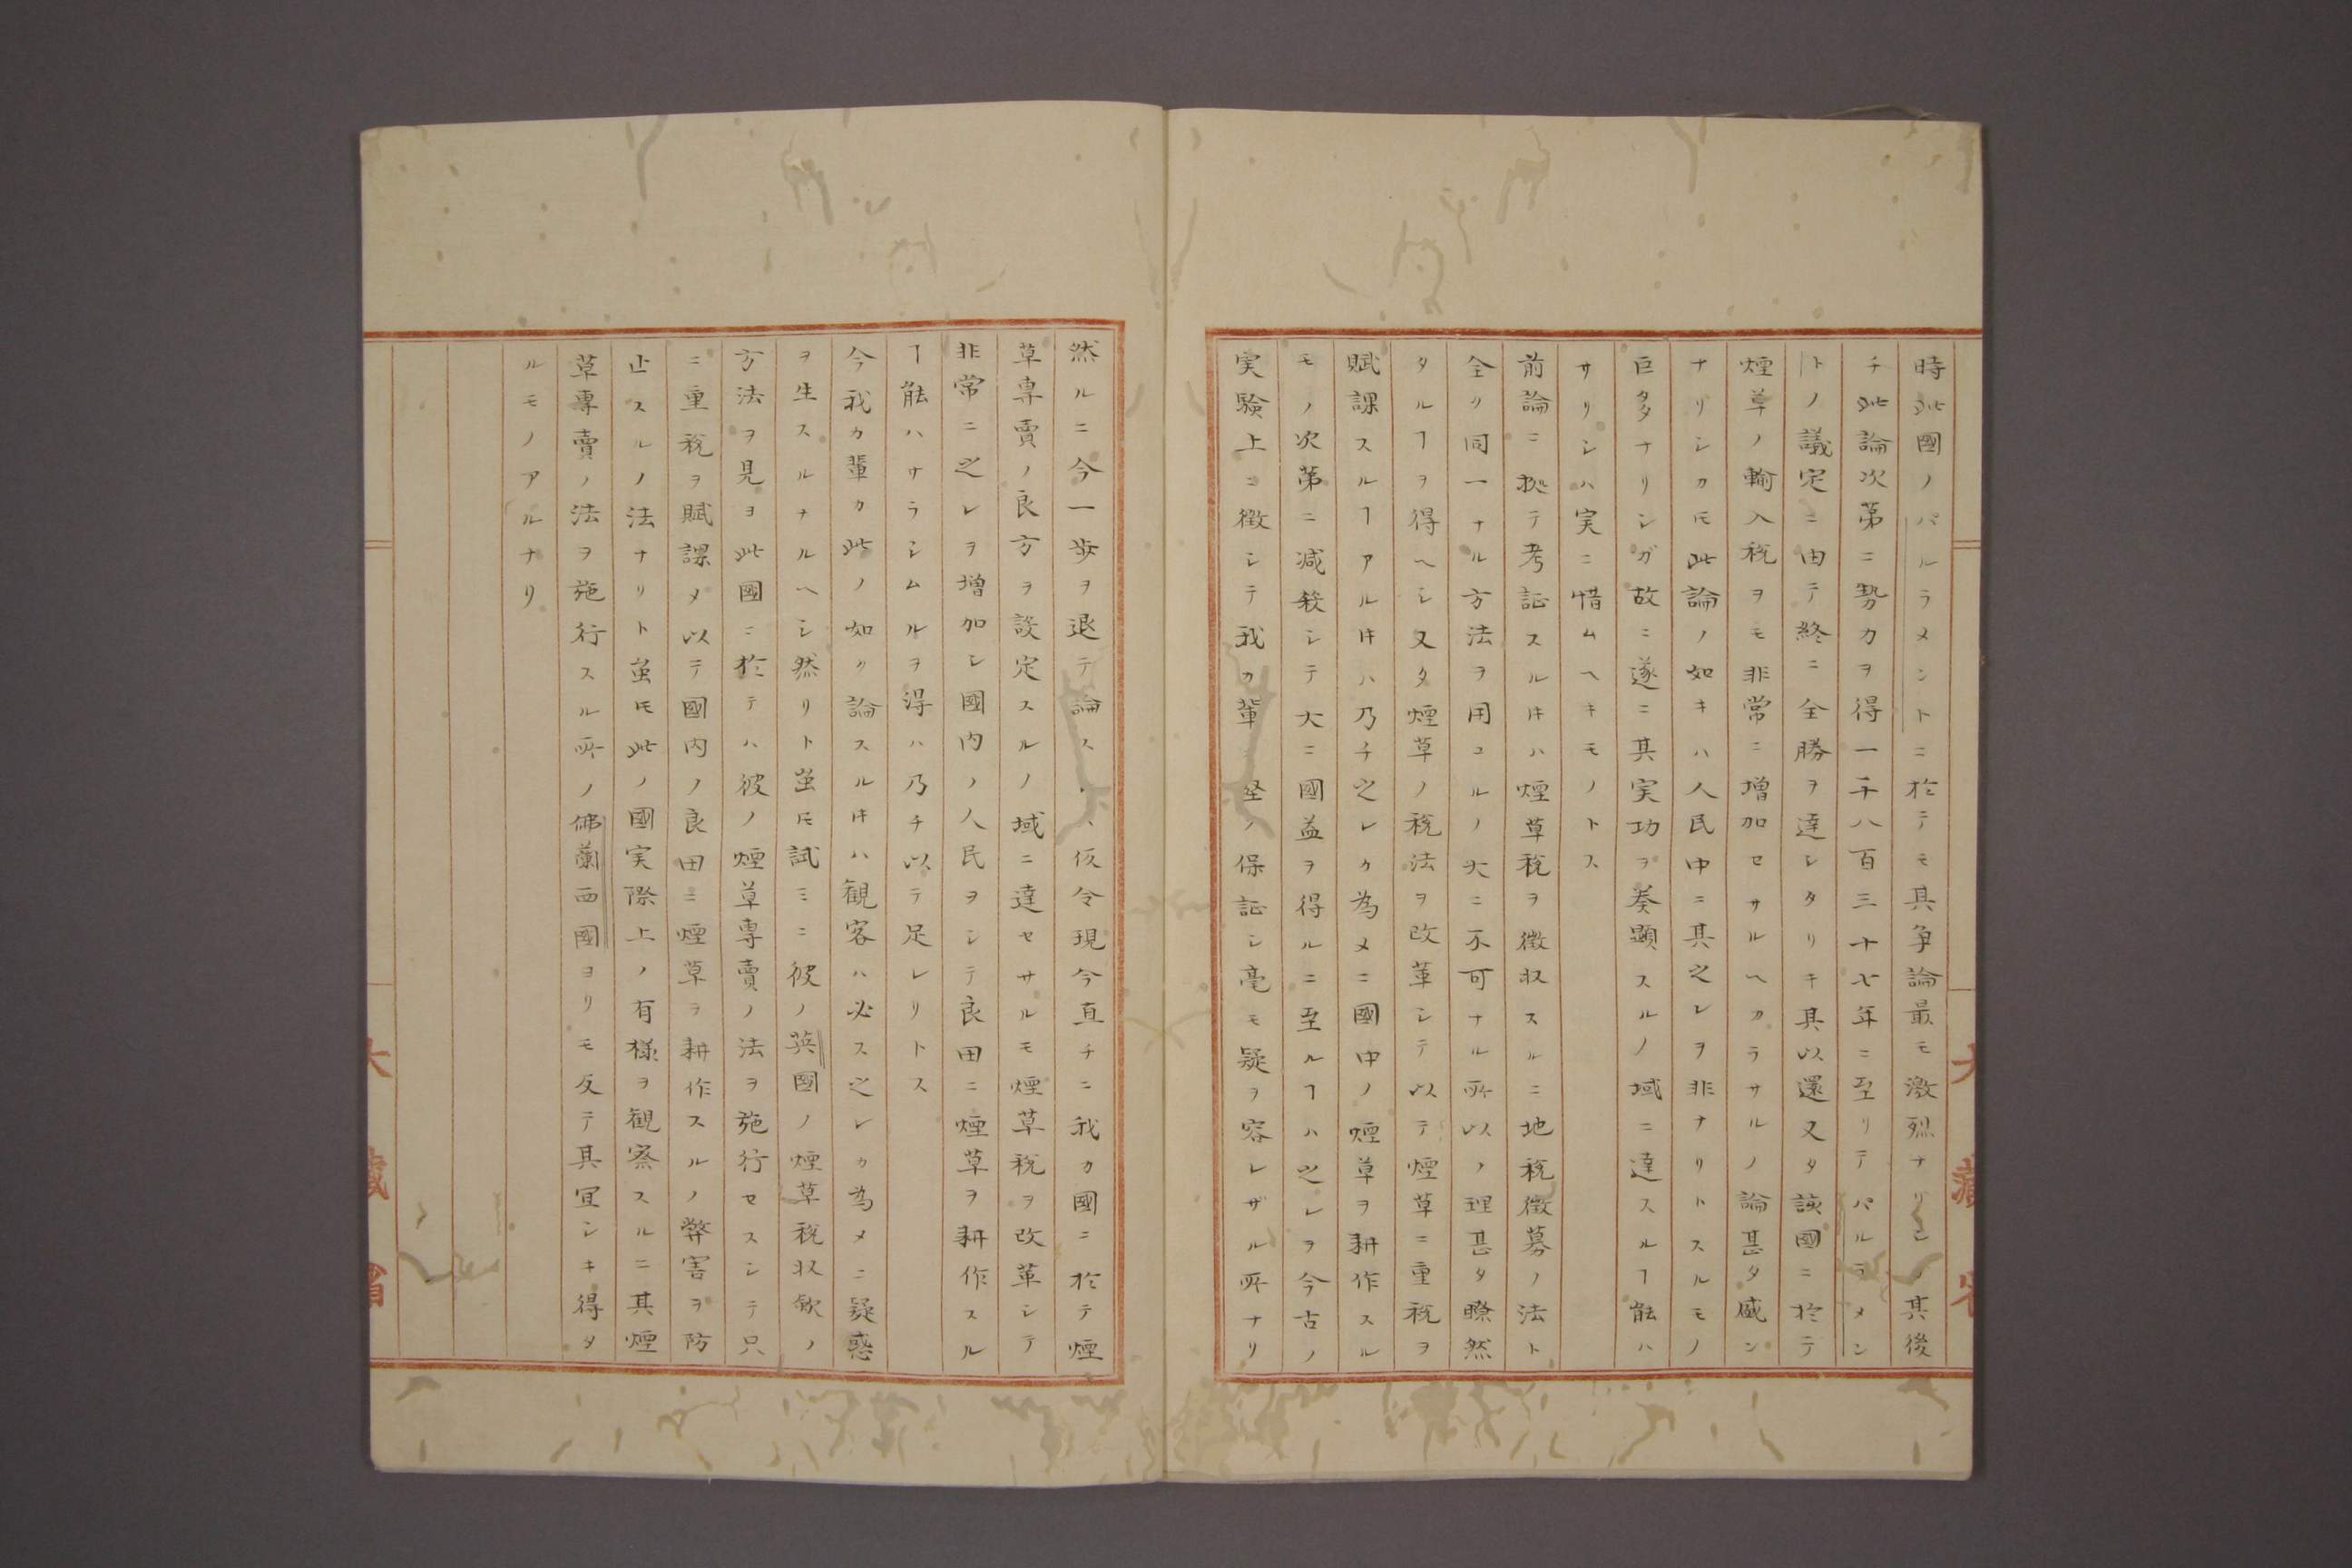 時此國ノパルラメントニ於テモ其争論最モ激烈ナリシノ其後
チ此論次第ニ勢力ヲ得一千八百三十七年ニ至リテパルラメン
トノ議定ニ由テ終ニ全勝ヲ達シタリキ其以還又タ該國ニ於テ
煙草ノ輸入税ヲモ非常ニ増加セサルヘカラサルノ論甚タ盛ン
ナリシカ𪜈此論ノ如キハ人民中ニ其之レヲ非ナリトスルモノ
巨多ナリシガ故ニ遂ニ其実功ヲ奏顕スルノ域ニ達スルヿ能ハ
サリシハ実ニ惜ムヘキモノトス
前論ニ拠テ考証スル𪜀ハ煙草税ヲ徴収スルニ地税徴募ノ法ト
全ク同一ナル方法ヲ用ユルノ大ニ不可ナル所以ノ理甚タ瞭然
タルヿヲ得ヘシ又タ煙草ノ税法ヲ改革シテ以テ煙草ニ重税ヲ
賦課スルヿアル𪜀ハ乃チ之レカ為メニ國中ノ煙草ヲ耕作スル
モノ次第ニ减殺シテ大ニ國益ヲ得ルニ至ルヿハ之レヲ今古ノ
実験上ニ徴シテ我カ輩ノ保証シ毫モ疑ヲ容レザル所ナリ
然ルニ今一歩ヲ退テ論スレハ仮令現今直チニ我カ國ニ於テ煙
草専賣ノ良方ヲ設定スルノ域ニ達セサルモ煙草税ヲ改革シテ
非常ニ之レヲ増加シ國内ノ人民ヲシテ良田ニ煙草ヲ耕作スル
ヿ能ハサラシムルヲ得ハ乃チ以テ足レリトス
今我カ輩カ此ノ如ク論スル𪜀ハ観客ハ必ス之レカ為メニ疑惑
ヲ生スルナルヘシ然リト虽𪜈試ミニ彼ノ英國ノ煙草税収歛ノ
方法ヲ見ヨ此國ニ於テハ彼ノ煙草専賣ノ法ヲ施行セスシテ只
ニ重税ヲ賦課メ以テ國内ノ良田ニ煙草ヲ耕作スルノ弊害ヲ防
止スルノ法ナリト虽𪜈此ノ國実際上ノ有様ヲ観察スルニ其煙
草専賣ノ法ヲ施行スル所ノ佛蘭西國ヨリモ反テ其宜シキ得タ
ルモノアルナリ
大藏省
大藏省